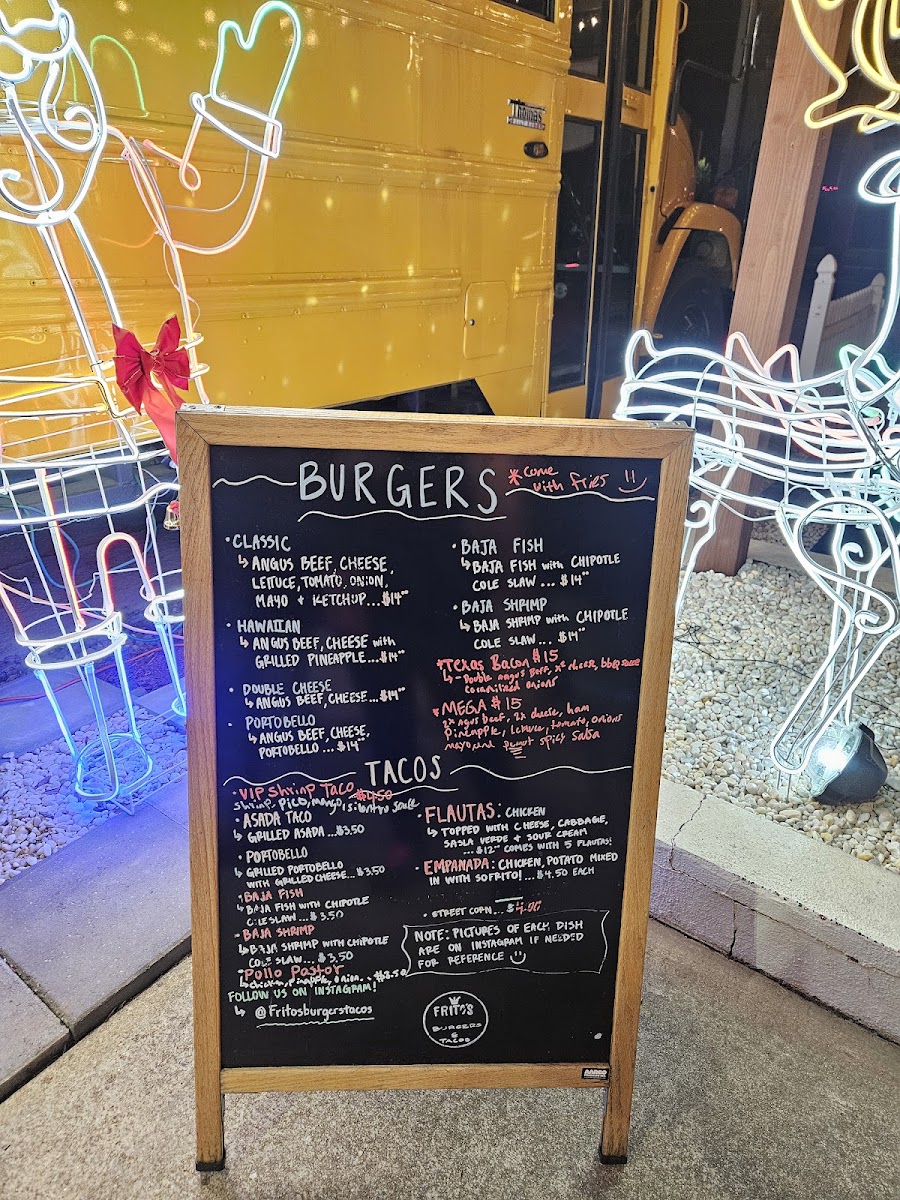 Thomas
BURGERS
*Come
with fries
• CLASSIC
↳ ANGUS BEEF, CHEESE,
LETTUCE, TOMATO, ONION,
MAYO + KETCHUP...$14
• HAWAIIAN
↳ ANGUS BEEF, CHEESE with
GRILLED PINEAPPLE...$14
• DOUBLE CHEESE
↳ ANGUS BEEF, CHEESE...$14
• PORTOBELLO
↳ ANGUS BEEF, CHEESE,
PORTOBELLO ... $14
• BAJA FISH
↳ BAJA FISH with CHIPOTLE
COLE SLAW ... $14
• BAJA SHRIMP
↳ BAJA SHRIMP with CHIPOTLE
COLE SLAW ... $14
*Texas Bacon $15
↳ - Double angus Beef, 2x cheese, bbq sauce
*MEGA $15
2x agus beef, 2x cheese, ham
pineapple, lettuce, tomato, onions
spicy Salsa
TACOS
• VIP Shrimp Taco $4.50
Shrimp, Pico, mango
• ASADA TACO
↳ GRILLED ASADA...$3.50
• PORTOBELLO
↳ GRILLED PORTOBELLO
WITH GRILLED CHEESE...$3.50
• BAJA FISH
↳ BAJA FISH WITH CHIPOTLE
COLE SLAW... $3.50
• BAJA SHRIMP
↳ BAJA SHRIMP WITH CHIPOTLE
COLE SLAW... $3.50
• Pollo Pastor
↳ chicken, Pineapple, Onion... $3.50
FOLLOW US ON INSTAGRAM!
↳ @Fritosburgerstacos
• FLAUTAS: CHICKEN
↳ TOPPED WITH CHEESE, CABBAGE,
SASLA VERDE & SOUR CREAM
...$12 COMES WITH 5 FLAUTAS!
EMPANADA: CHICKEN, POTATO MIXED
IN WITH SOFRITO!... $4.50 EACH
• STREET CORN... $4.00
NOTE: PICTURES OF EACH DISH
ARE ON INSTAGRAM IF NEEDED
FOR REFERENCE
FRITO'S
BURGERS
&
TACOS
AARCO